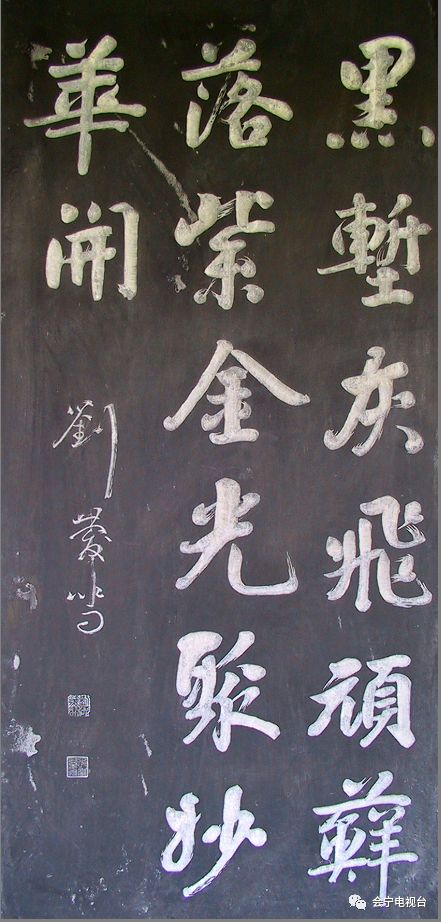 黑塹灰飛頑蘚
落紫金光聚妙
華開
劉慶鴻
会宁电视台